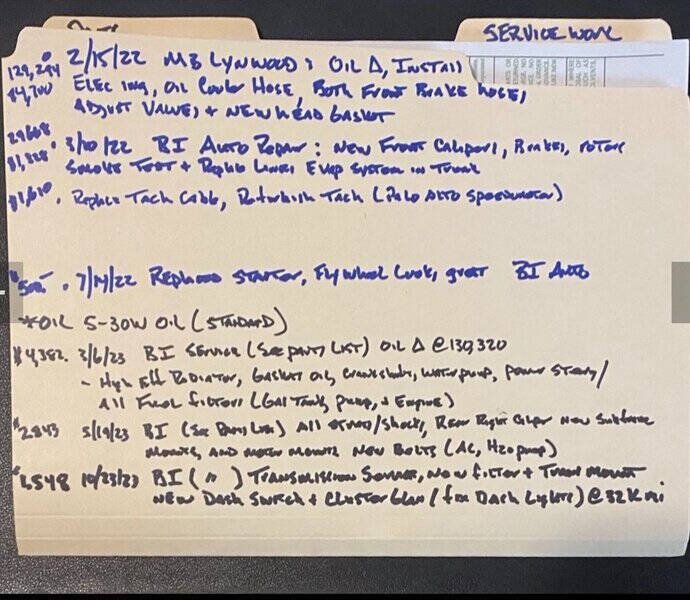 SERVICE WORK
129,244 2/15/22 MB LYNWOOD: OIL Δ, INSTALL
$4,700 ELEC IGN, OIL COOLER HOSE, BOTH FRONT BRAKE HOSE,
ADJUST VALVES + NEW HEAD GASKET
29668
$1,328 3/10/22 BI AUTO REPAIR: NEW FRONT CALIPERS, BRAKES, ROTORS
SMOKE TEST + LINES EVAP SYSTEM IN TRUNK
$1,610, REPLACE TACH CABLE, REFURBISH TACH (PALO ALTO SPEEDOMETER)
7/14/22 REPLACED STARTER, FLYWHEEL LOOK, GREAT BI AUTO
*OIL 5-30W OIL (STANDARD)
$4,382. 3/6/23 BI SERVICE (SEE PARTS LIST) OIL Δ @130,320
- HIGH EFF RADIATOR, GASKET OIL, CRANKSHAFT, WATER PUMP, POWER STEERING/
ALL FUEL FILTERS (GAS TANK, PUMP, + ENGINE)
$2843 5/19/23 BI (SEE PARTS LIST) ALL STRUTS/SHOCKS, REAR RIGHT CALIPER NEW SUBFRAME
MOUNTS, AND MOTOR MOUNTS NEW BOLTS (AC, H2O PUMP)
10/23/23 BI (") TRANSMISSION SERVICE, NEW FILTER + TRANS MOUNT
NEW DASH SWITCH + CLUSTER (FOR DASH LIGHTS) @32K mi